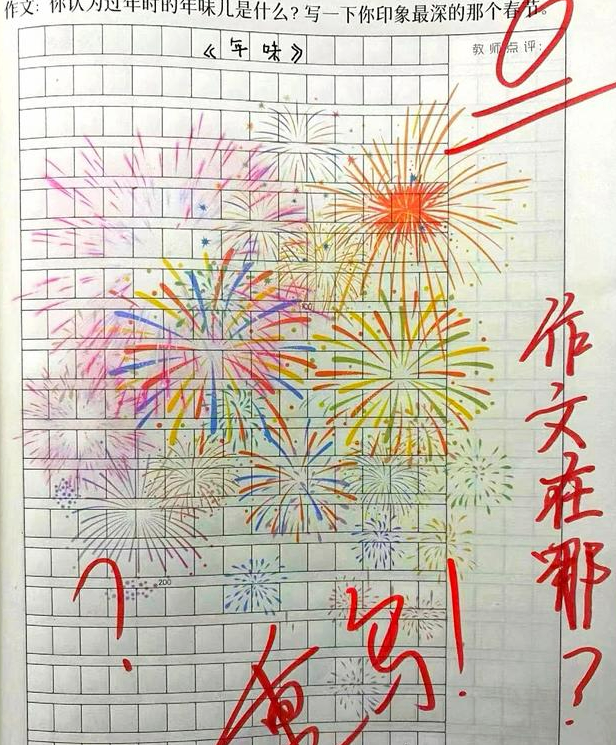 作文：你认为过年时的年味儿是什么？写一下你印象最深的那个春节。
《年味》
教师点评：
0
100
作文在哪？
200
？
重写！